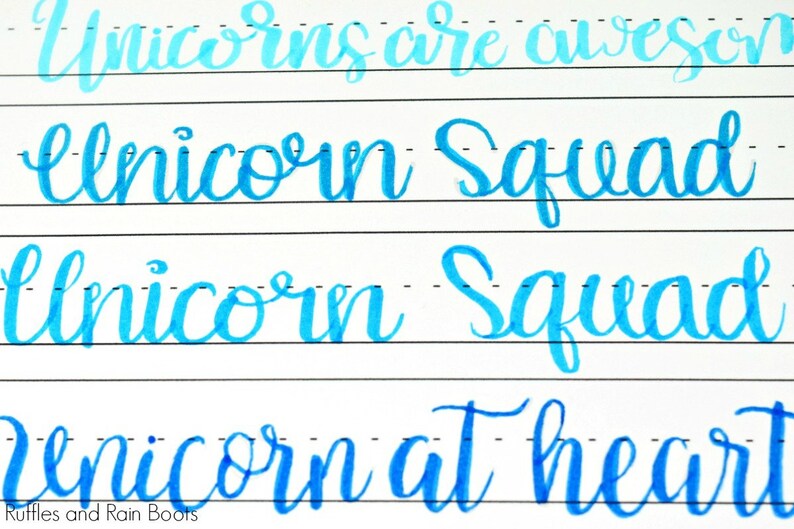 Unicorns are awesom
Unicorn Squad
Unicorn Squad
Unicorn at heart
Ruffles and Rain Boots